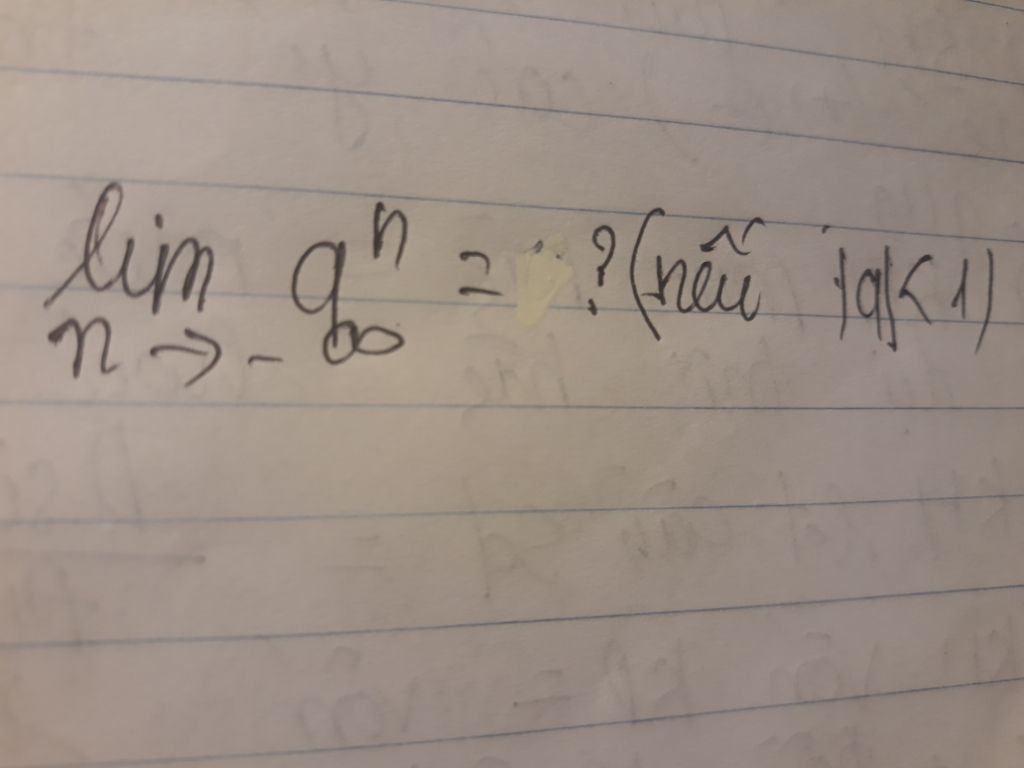 lim qⁿ = ? (nếu |q| < 1)
n → - ∞